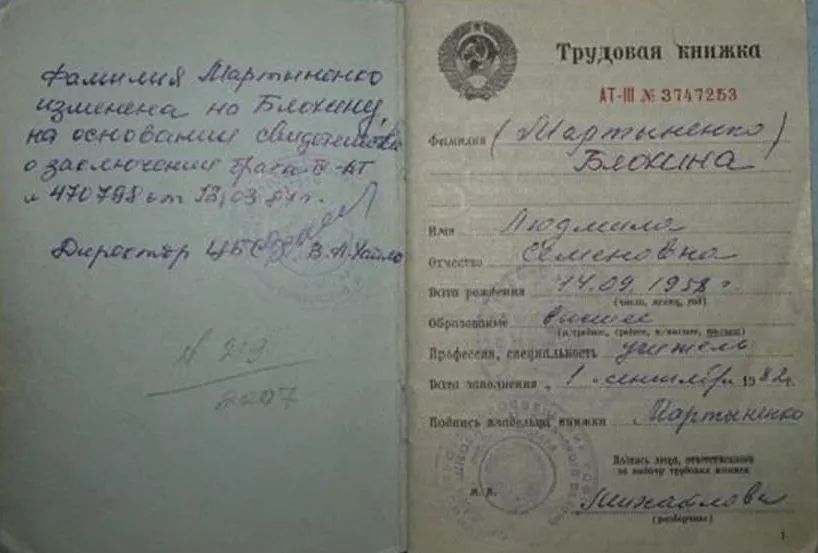 Фамилия Мартыненко
изменена на Блохину,
на основании свидетельства
о заключении брака
№ 470798 от 13.03.87 г.
Директор ЦБС В. А.
№ 219
2207
Трудовая книжка
АТ-III № 3747253
Фамилия (Мартыненко)
Блохина
Имя Людмила
Отчество Семеновна
Дата рождения 14.09.1958 г
(число, месяц, год)
Образование высшее
(н/среднее, среднее, н/высшее, высшее)
Профессия, специальность учитель
Дата заполнения „1" сентября 1982 г.
Подпись владельца книжки Мартыненко
Подпись лица, ответственного
за выдачу трудовых книжек
М. П.
(разборчиво)
1